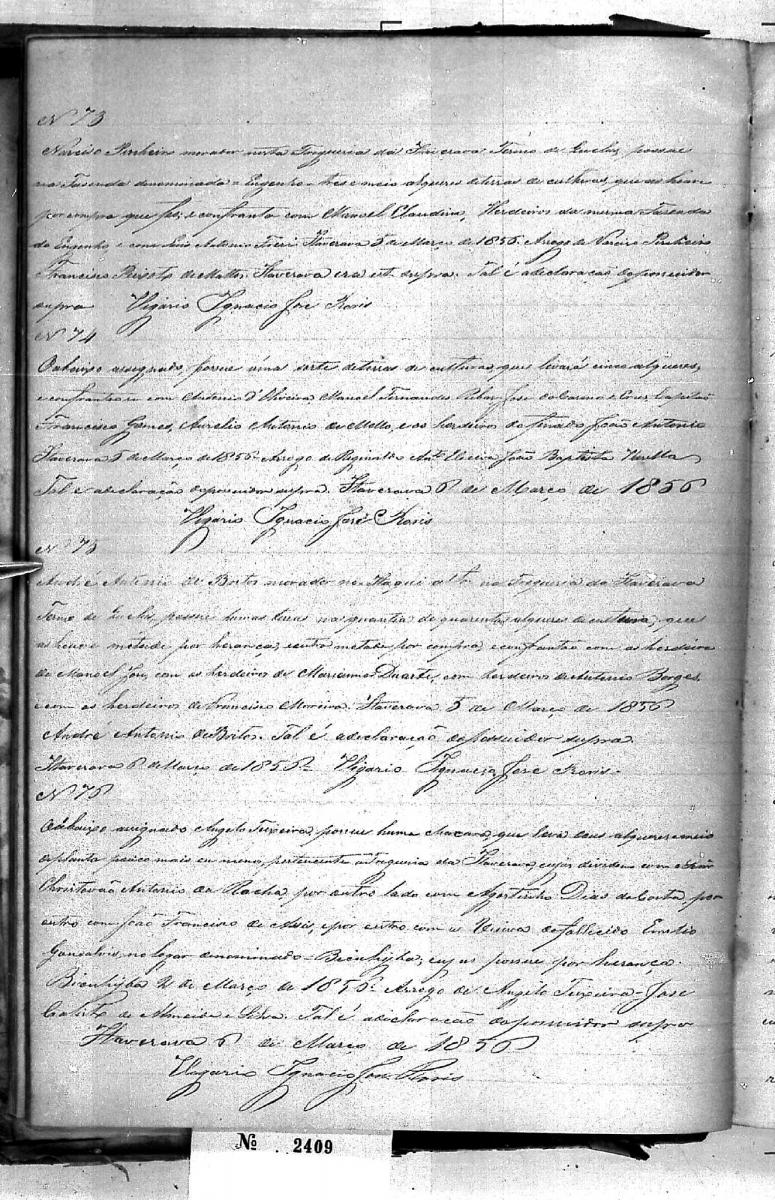 Nº 73
Narciso Pinheiro morador nesta Freguesia da Itaverava Termo de Queluz, possue
na Fasenda denominada = Engenho = tres e meio alqueres de terras de culturas, que as houve
por compra que fez, e confronta com Manoel Claudino, Herdeiros da mesma Fasenda
do Engenho e com Luis Antonio Itaverava 5 de Março de 1856. Arrogo de Narciso Pinheiro
Francisco Peixoto de Mello. Itaverava era ut supra. Tal é a declaração do possuidor
supra Vigario Ignacio José
Nº 74
O abaixo assignado, possue uma sorte de terras de culturas, que levará cinco alqueres,
e confrontão com Antonio d'Oliveira, Manoel Fernandes José do Carmo e Capitão
Francisco Gomes, Aurelio Antonio de Mello, e os herdeiros do finado João Antonio
Itaverava 5 de Março de 1856. Arrogo de Reginaldo Antº Vieira João Baptista
Tal é a declaração do possuidor supra. Itaverava 6 de Março de 1856
Vigario Ignacio José
Nº 75
André Antonio de Britos morador no na Freguesia da Itaverava
Termo de Queluz, possue humas terras na quantia de quarenta alqueres de cultura, que
as houve metade por herança, e outro metade por compra, e confrontão com os herdeiros
de Manoel José, com os herdeiros de Marianna Duarte, com herdeiros de Antonio Borges,
e com os herdeiros de Francisco Moreira. Itaverava 5 de Março de 1856
André Antonio de Britos. Tal é a declaração do possuidor supra.
Itaverava 6 de Março de 1856. Vigario Ignacio José
Nº 76
O abaixo assignado Angelo Teixeira, possue huma chacara, que leva dous alqueres e meio
de planta pouco mais ou menos, pertencente a Freguesia da Itaverava, cujas dividem com
Christovão Antonio da Rocha, por outro lado com Agostinho Dias da Costa, por
outro com João Francisco de Assis, e por outro com a Viuva do fallecido
Gonsalves, no logar denominado = cujas possue por herança.
2 de Março de 1856. Arrogo de Angelo Teixeira = José
de Almeida e Silva. Tal é a declaração do possuidor supra
Itaverava 6 de Março de 1856
Vigario Ignacio José
Nº 2409